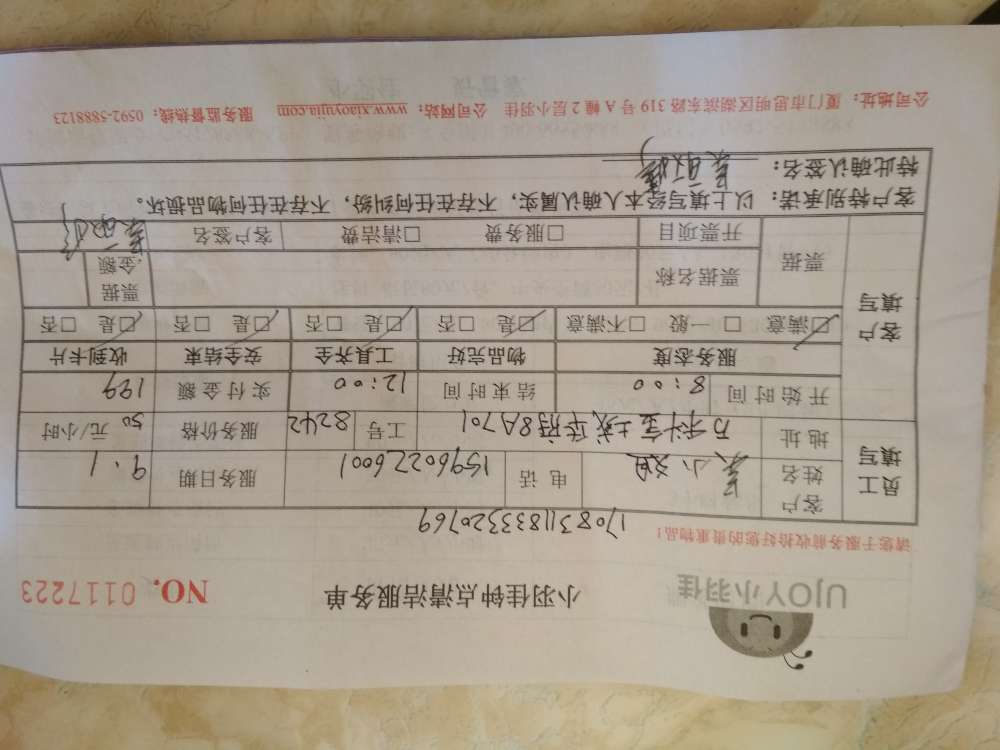 UJOY小羽佳 小羽佳钟点清洁服务单 NO. 0117223
请您于服务前收拾好您的贵重物品!
1708311833320769
员工填写 客户姓名 吴小姐 电话 15960226001 服务日期 9.1
地址 万科金域华府8A701 工号 8242 服务价格 50 元/小时
客户填写 开始时间 8:00 结束时间 12:00 实付金额 199
服务态度 物品完好 工具齐全 安全结束 收到卡片
☑满意 □一般 □不满意 ☑是 □否 ☑是 □否 ☑是 □否 ☑是 □否
票据 票据名称 票据金额
开票项目 □服务费 □清洁费 客户签名
客户特别承诺：以上填写经本人确认属实，不存在任何纠纷，不存在任何物品损坏。
特此确认签名：
公司地址：厦门市思明区湖滨东路 319 号 A 幢 2 层小羽佳 公司网站：www.xiaoyujia.com 服务监督热线：0592-5888123